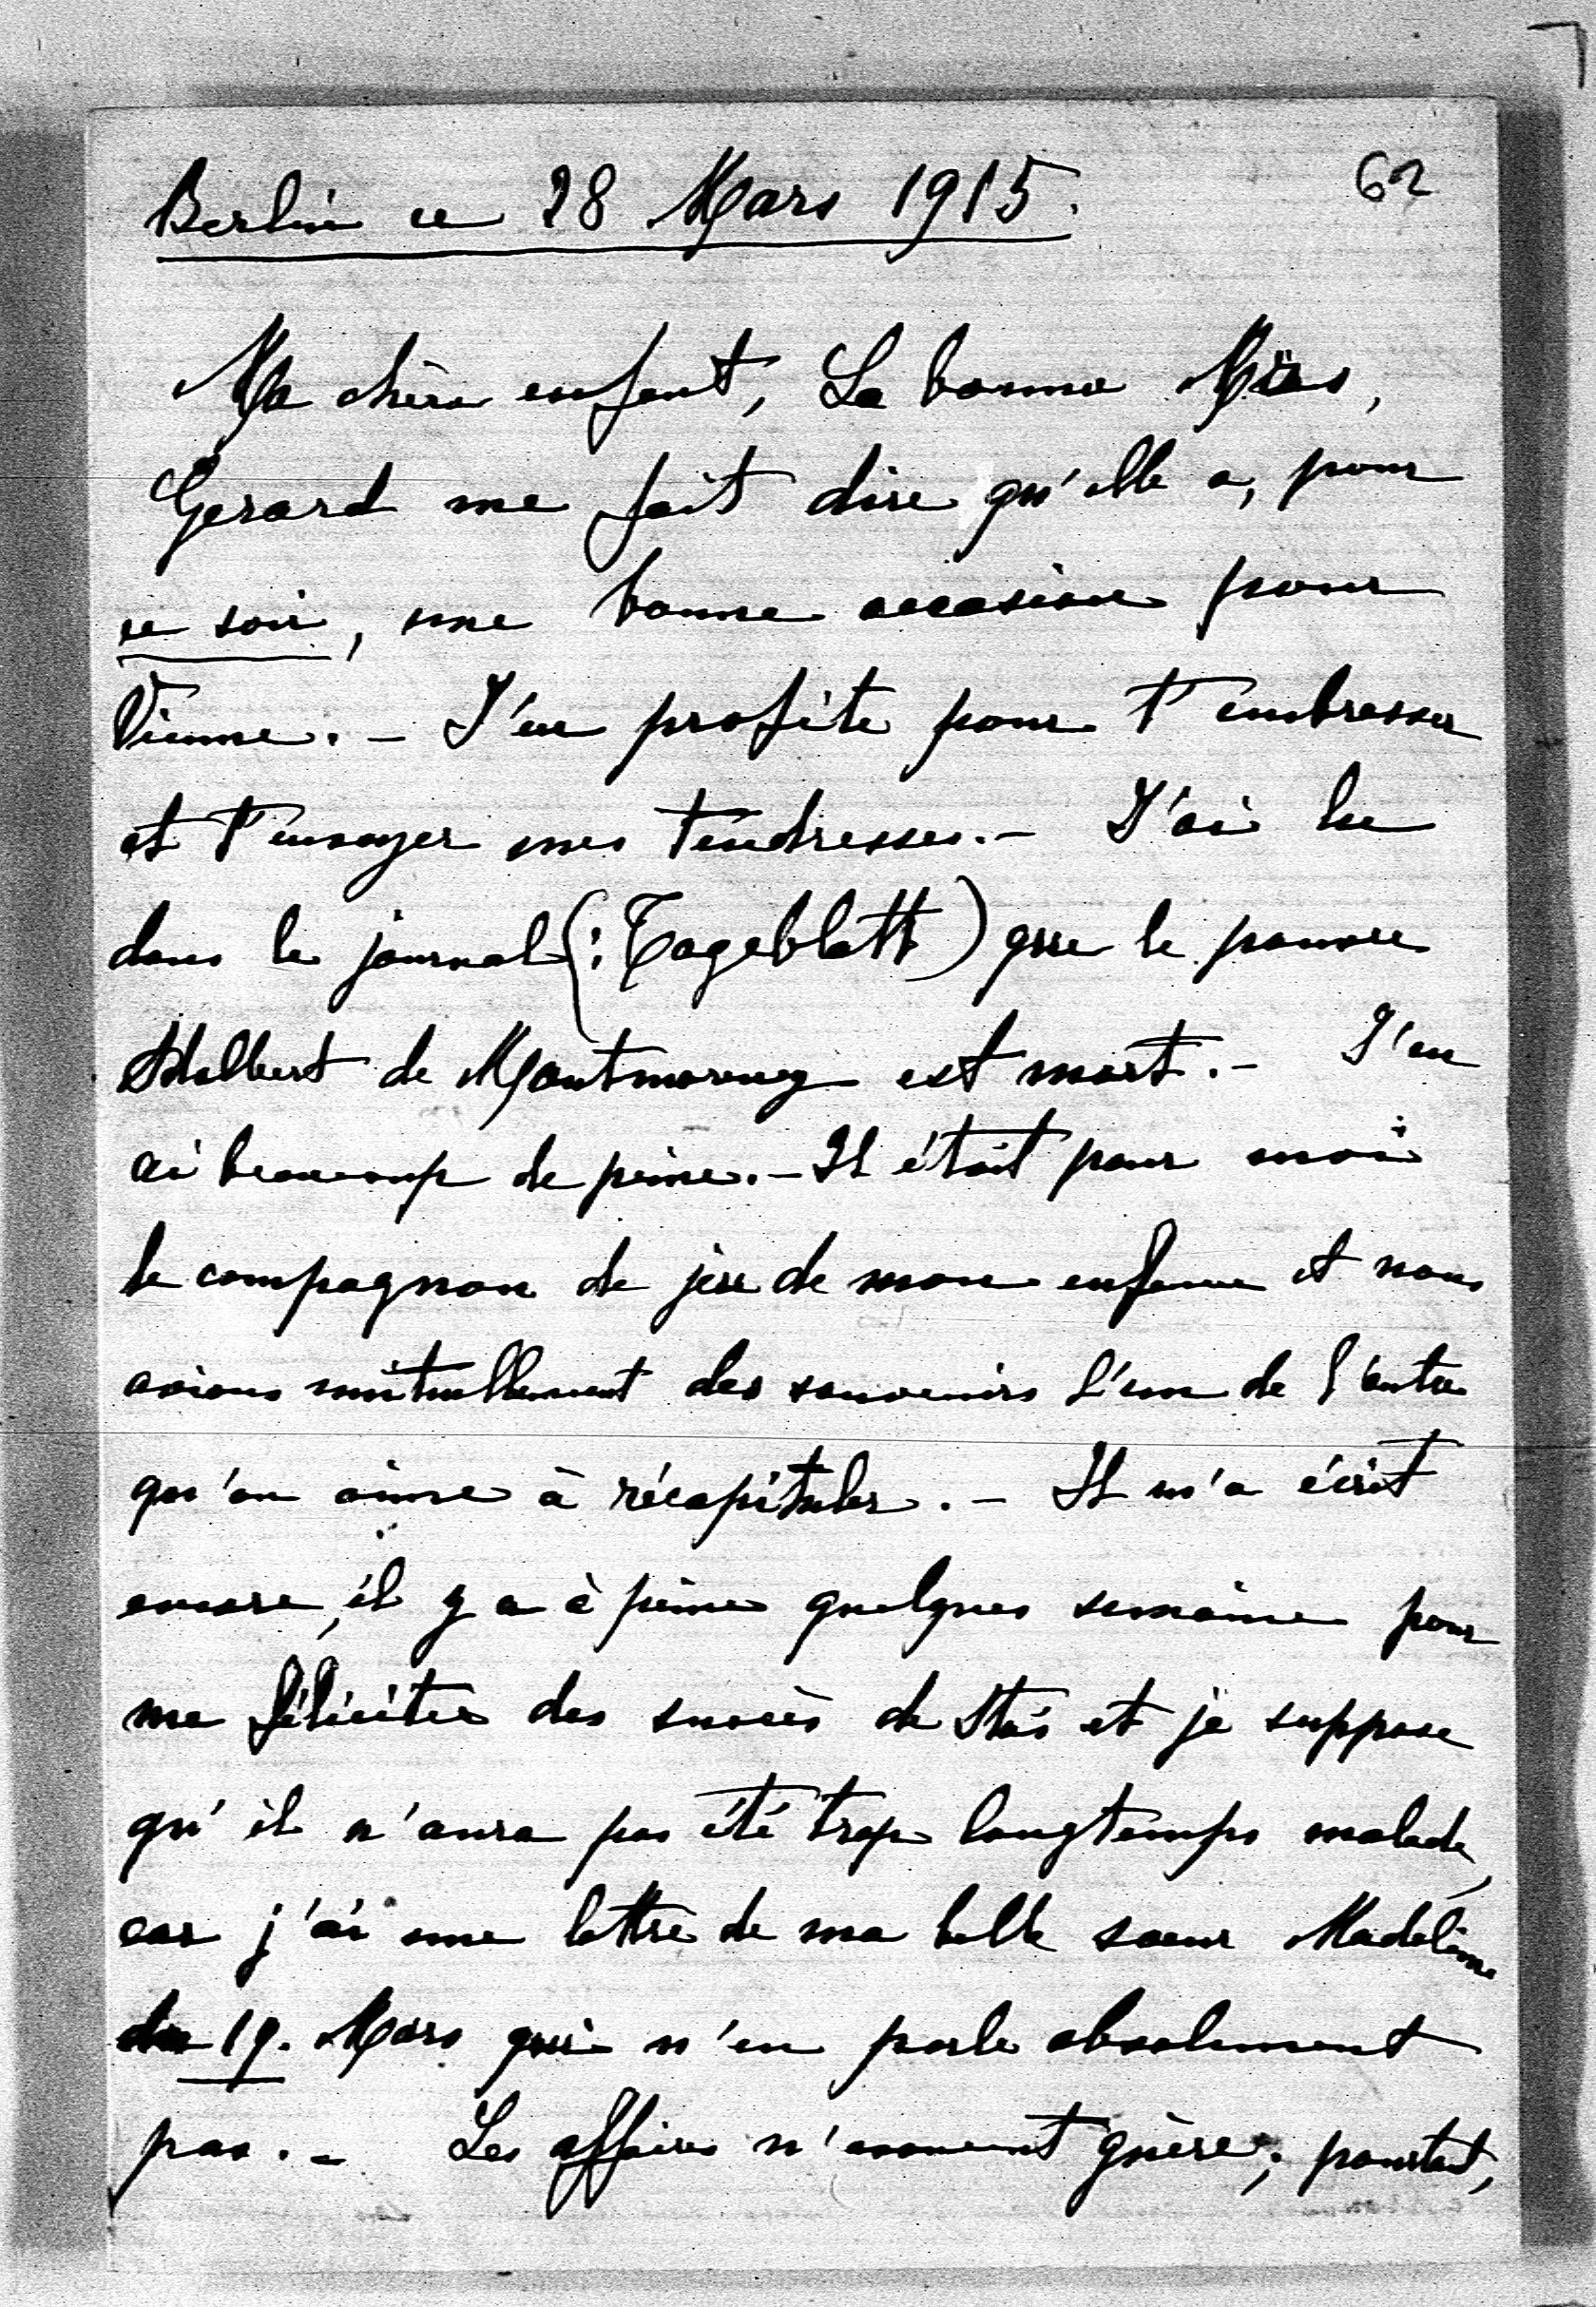 62
Berlin ce 28 Mars 1915.
Ma chère enfant, La bonne
Gerard me fait dire qu'elle a, pour
ce soir, une bonne occasion pour
Vienne. - J'en profite pour t'embrasser
et t'envoyer mes tendresses. - J'ai lu
dans le journal (: Tageblatt) que le pauvre
Adalbert de Montmorency est mort. - J'en
ai beaucoup de peine. - Il était pour moi
le compagnon de jeu de mon enfance et nous
avions mutuellement des souvenirs l'un de l'autre
qu'on aime à récapituler. - Il m'a écrit
encore, il y a à peine quelques semaine pour
me féliciter des succès de Stas et je suppose
qu'il n'aura pas été trop longtemps malade,
car j'ai une lettre de ma belle soeur Madeleine
du 19. Mars qui n'en parle absolument
pas. - Les affaires n'avancent guère; pourtant,